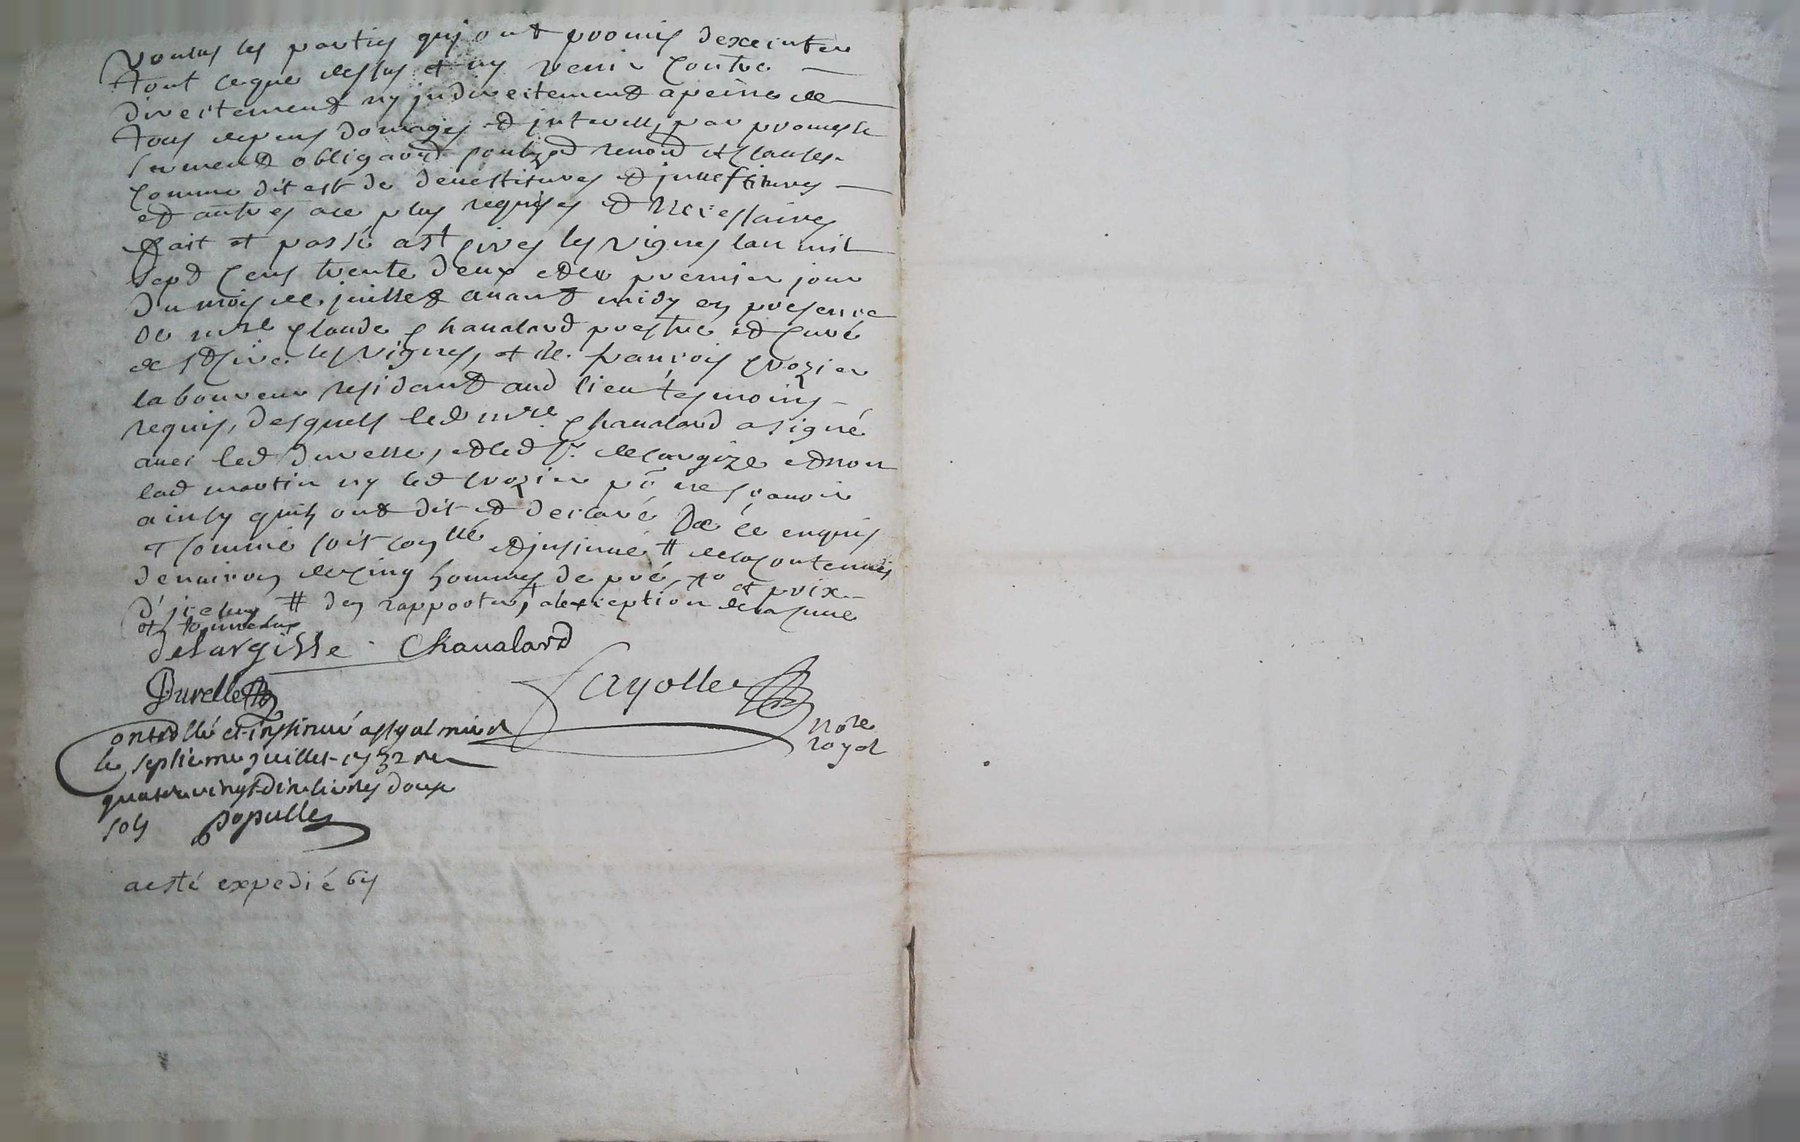 voulus les parties quj ont promis dexecuter
tout ceque dessus et ny venir contre
directement ny jndirectement apeine de
tous depens domages et jnterests par promesse
serment obligaõn renond et clauses
comme dit est de devestitures et jnvestitures
et autres ace plus requises et necessaires
fait et passé a st cires les vignes lan mil
sept cens trente deux et le premier jour
du mois de juillet avant midy en presence
de mre claude chaualard prestre et curé
de st cire les vignes, et de francois crozier
laboureur residant aud lieu tesmoins
requis, desquels led mre chaualard a signé
avec led durelle, et led sr delargize et non
lad martin ny led crozier põ ne scavoir
ainsy quils ont dit et declaré de ce enquis
et sommé soit conllé et jnsinué # de la contenue
denviron de cinq hommes de pré, et prix
d'jceluy # den rapporter, alexception de la
delargisse Chaualard
Durelle
Cayolle
nore
royal
Controllé et insinué a st galmier
le septieme juillet 1732 
quatre vingt dix livres douze
sols populle
a esté expedié